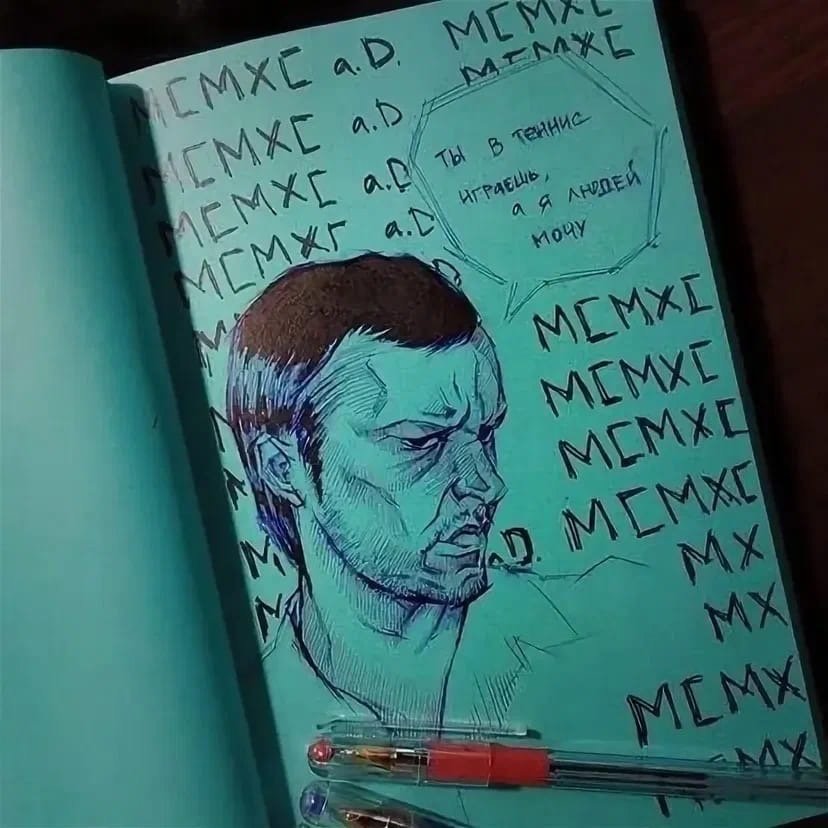 MCMXC
MCMXC a.D. MCMXC
MCMXC a.D
MCMXC a.D
MCMXC a.D
ТЫ В ТЕННИС
ИГРАЕШЬ,
А Я ЛЮДЕЙ
МОЧУ
MCMXC
MCMXC
MCMXC
a.D. MCMXC
MX
MX
MCMX